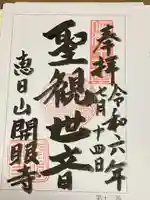 奉拝
令和六年
七月十四日
聖観世音
恵日山開眼寺